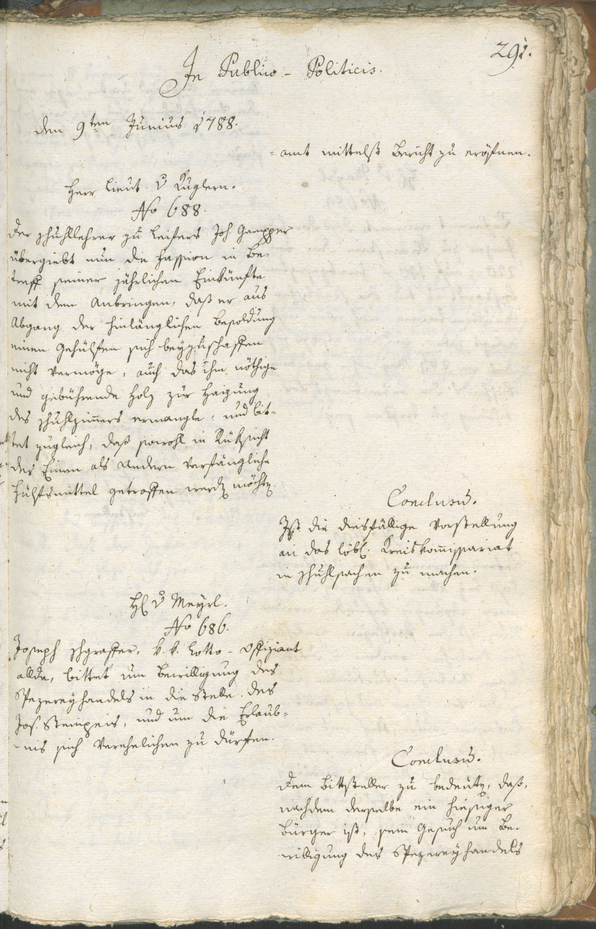 In Publico-Politicis.
291.
den 9ten Junius 1788.
-amt mittelst Bericht zu eröfnen.
Herr Lieut. v Kuglern.
No 688.
Der Schullehrer zu Leifers Joh Gamper
übergiebt nun die Fassion in Be-
treff seiner jährlichen Einkünfte
mit dem Anbringen, daß er aus
Abgang der hinlänglichen Besoldung
einen Gehülfen sich beyzuschaffen
nicht vermöge, auch das ihm nöthige
und gebührende Holz zur Haizung
des Schulzimers ermangle; und bit-
tet zugleich, daß sowohl in Rüksicht
des Einen als Andern verfängliche
Hülfsmittel getroffen werdn möchtn.
Conclusum.
Ist die diesfällige Vorstellung
an das löbl. Kreiskommissariat
in Schulsachen zu machen.
H v Meyrl.
No 686.
Joseph Schgraffer, k. k. Lotto-Offiziant
allda, bittet um Bewilligung des
Spezereyhandels in die Stelle des
Jos. Stempeis, und um die Erlaub-
-nis sich verehelichen zu dürfen.
Conclusum.
Dem Bittsteller zu bedeutn, daß,
nachdem derselbe ein hiesiger
Bürger ist, sein Gesuch um Be-
willigung des Spezereyhandels